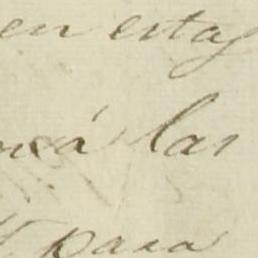 en estas
á las
para